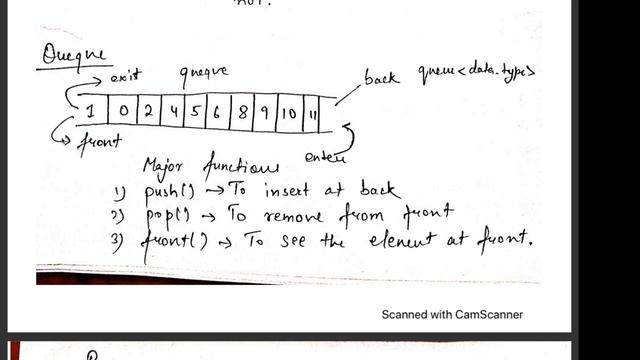 not.
Queue
exit queue back queue<data-type>
1 0 2 4 5 6 8 9 10 11
front
enter
Major functions
1) push() → To insert at back
2) pop() → To remove from front
3) front() → To see the element at front.
Scanned with CamScanner